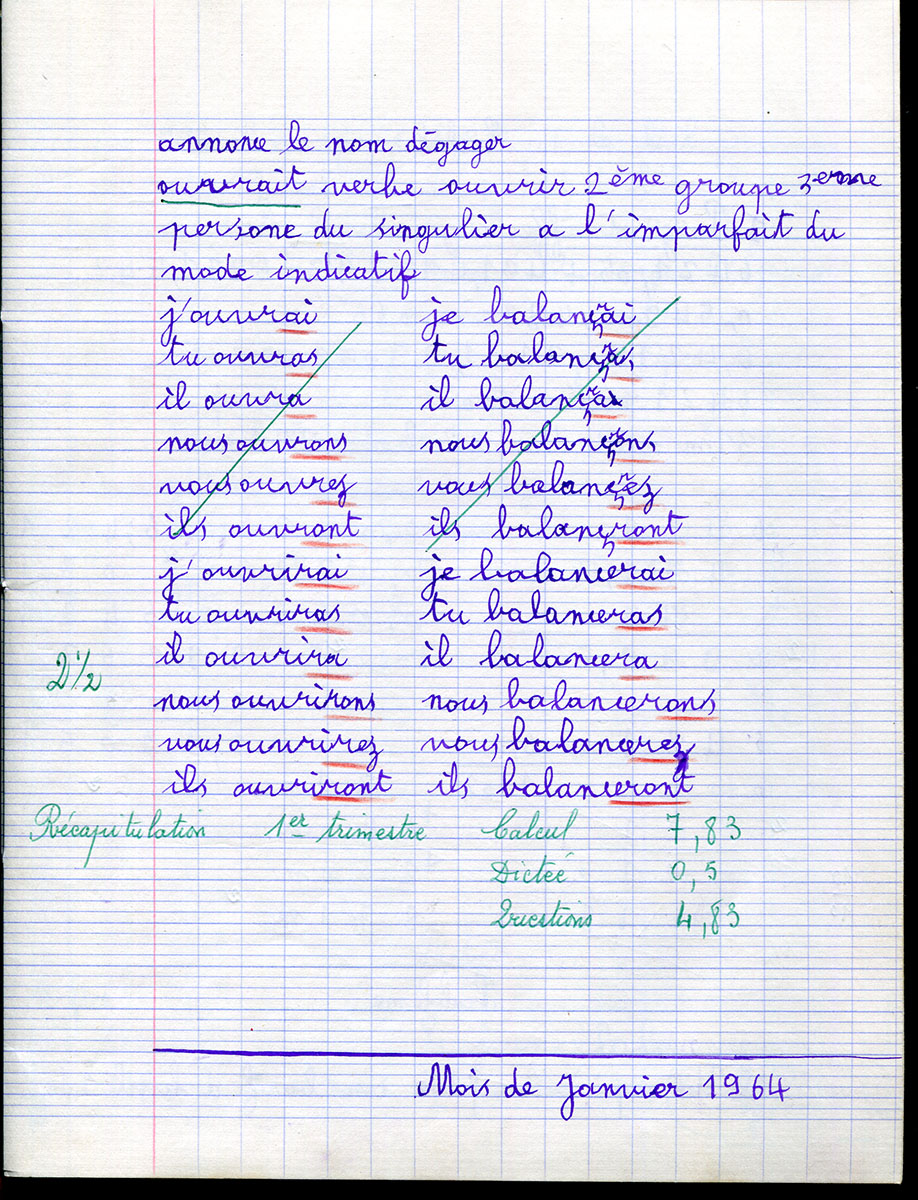 annonce le nom dégager
ouvrait verbe ouvrir 2ème groupe 3eme
persone du singulier a l'imparfait du
mode indicatif
j'ouvrai je balançrai
tu ouvras tu balançras
il ouvra il balançra
nous ouvrons nous balançrons
vous ouvrez vous balançrez
ils ouvront ils balançront
j'ouvrirai je balancerai
tu ouvriras tu balanceras
il ouvrira il balancera
2 1/2
nous ouvrirons nous balancerons
vous ouvrirez vous balancerez
ils ouvriront ils balanceront
Récapitulation 1er trimestre Calcul 7,83
Dictée 0,5
Questions 4,83
Mois de Janvier 1964